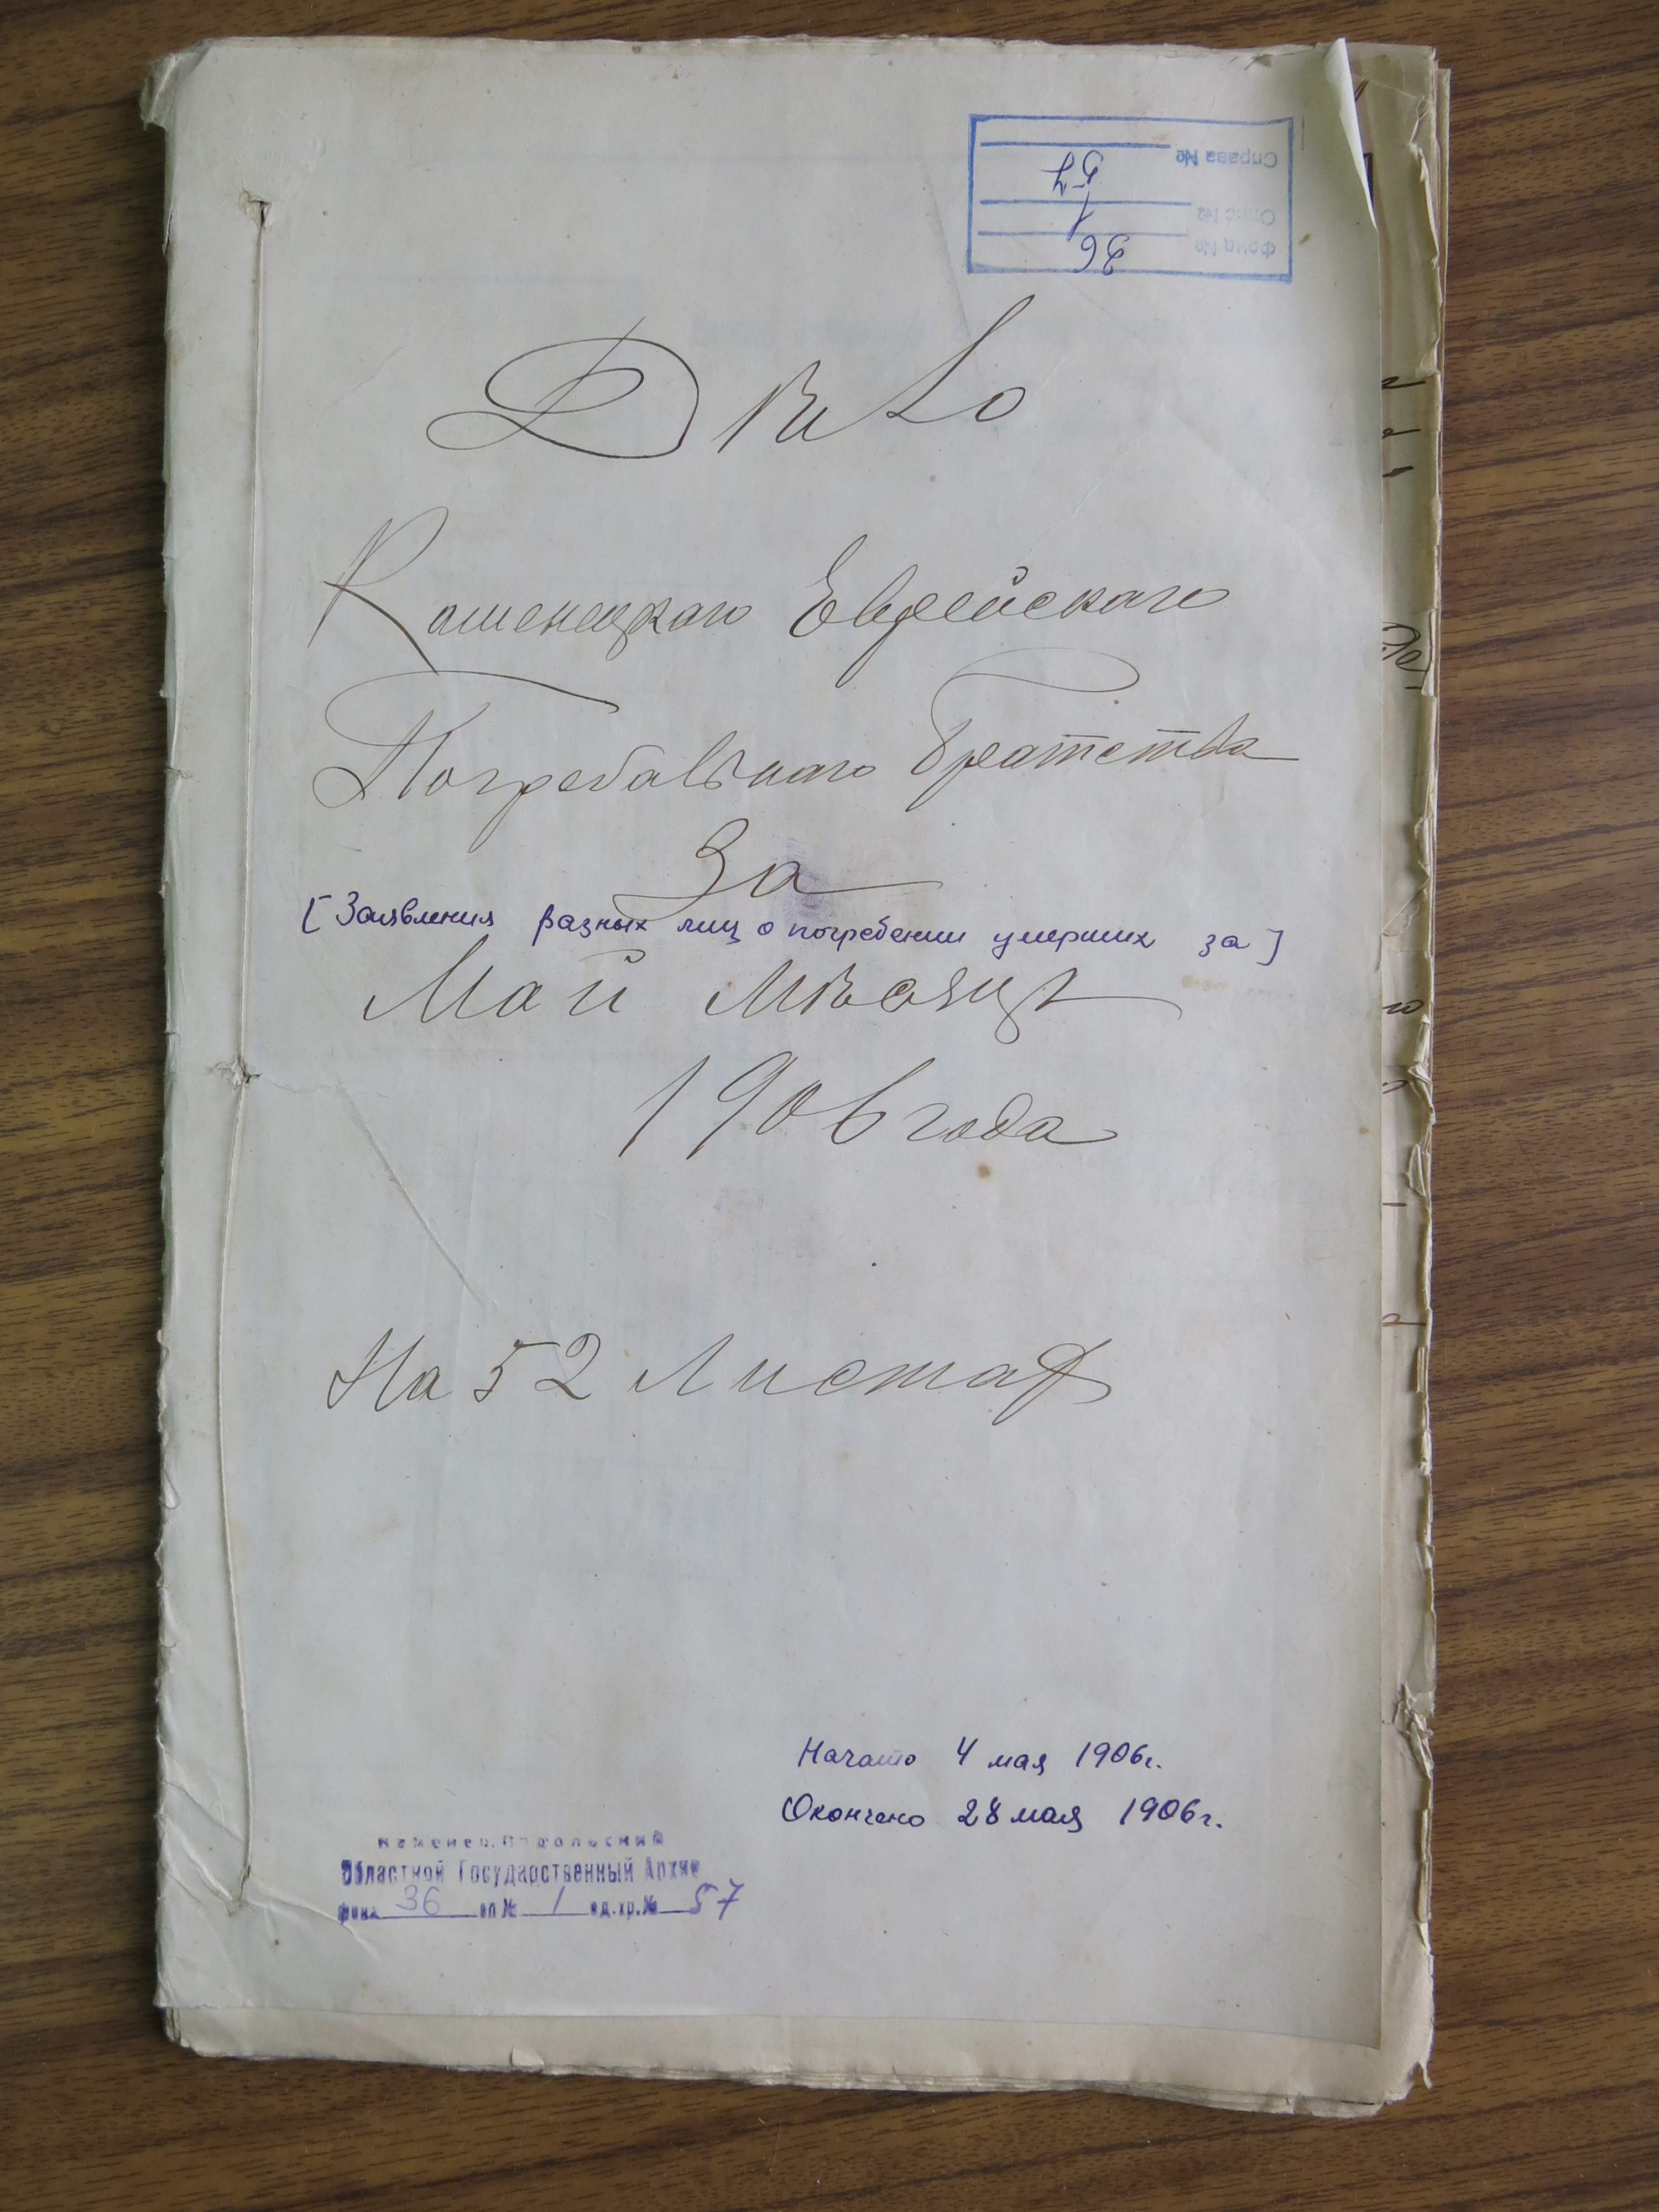 Фонд № 36
Опис № 1
Справа № 57
Дѣло
Каменецкаго Еврейскаго
Погребальнаго Братства
За
[Заявления разных лиц о погребении умерших за]
Май мѣсяцъ
1906 года
На 52 Листах
Начато 4 мая 1906г.
Окончено 28 мая 1906г.
Каменец. Подольский
Областной Государственный Архив
фонд 36 оп № 1 ед. хр. № 57